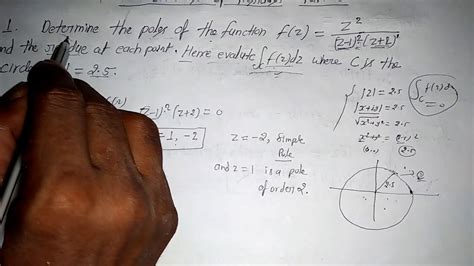 1. Determine the poles of the function f(z) = z² / (z-1)²(z+2)
and the residue at each point. Hence evaluate ∫c f(z)dz where C is the
circle = 2.5.
(z-1)²(z+2)=0
=1, -2
z=-2, simple
pole
and z=1 is a pole
of order 2.
|z| = 2.5
|x+iy| = 2.5
√x²+y² = 2.5
2.5
∫c f(z)dz
=0
2.5